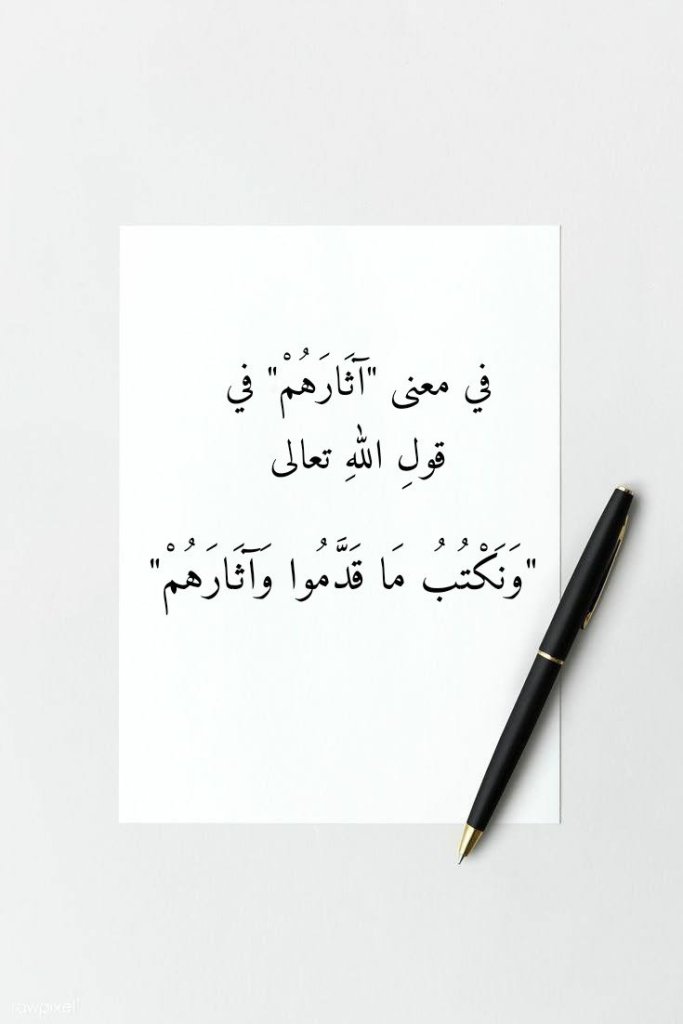 في معنى "آثَارَهُمْ" في
قولِ اللهِ تعالى
"وَنَكْتُبُ مَا قَدَّمُوا وَآثَارَهُمْ"
rawpixel